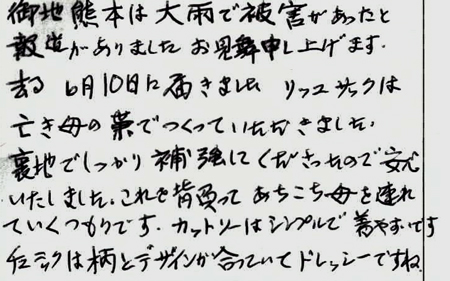 御地熊本は大雨で被害があったと
報道がありました お見舞申し上げます.
去る 6月10日に届きました リックサックは
亡き母の 帯でつくっていただきました.
裏地でしっかり 補強してくださったので 安心
いたしました. これを背負って あちこち母を連れ
ていくつもりです. カットソーはシンプルで 着やすいです
チュニックは柄とデザインが合っていて ドレッシーですね.